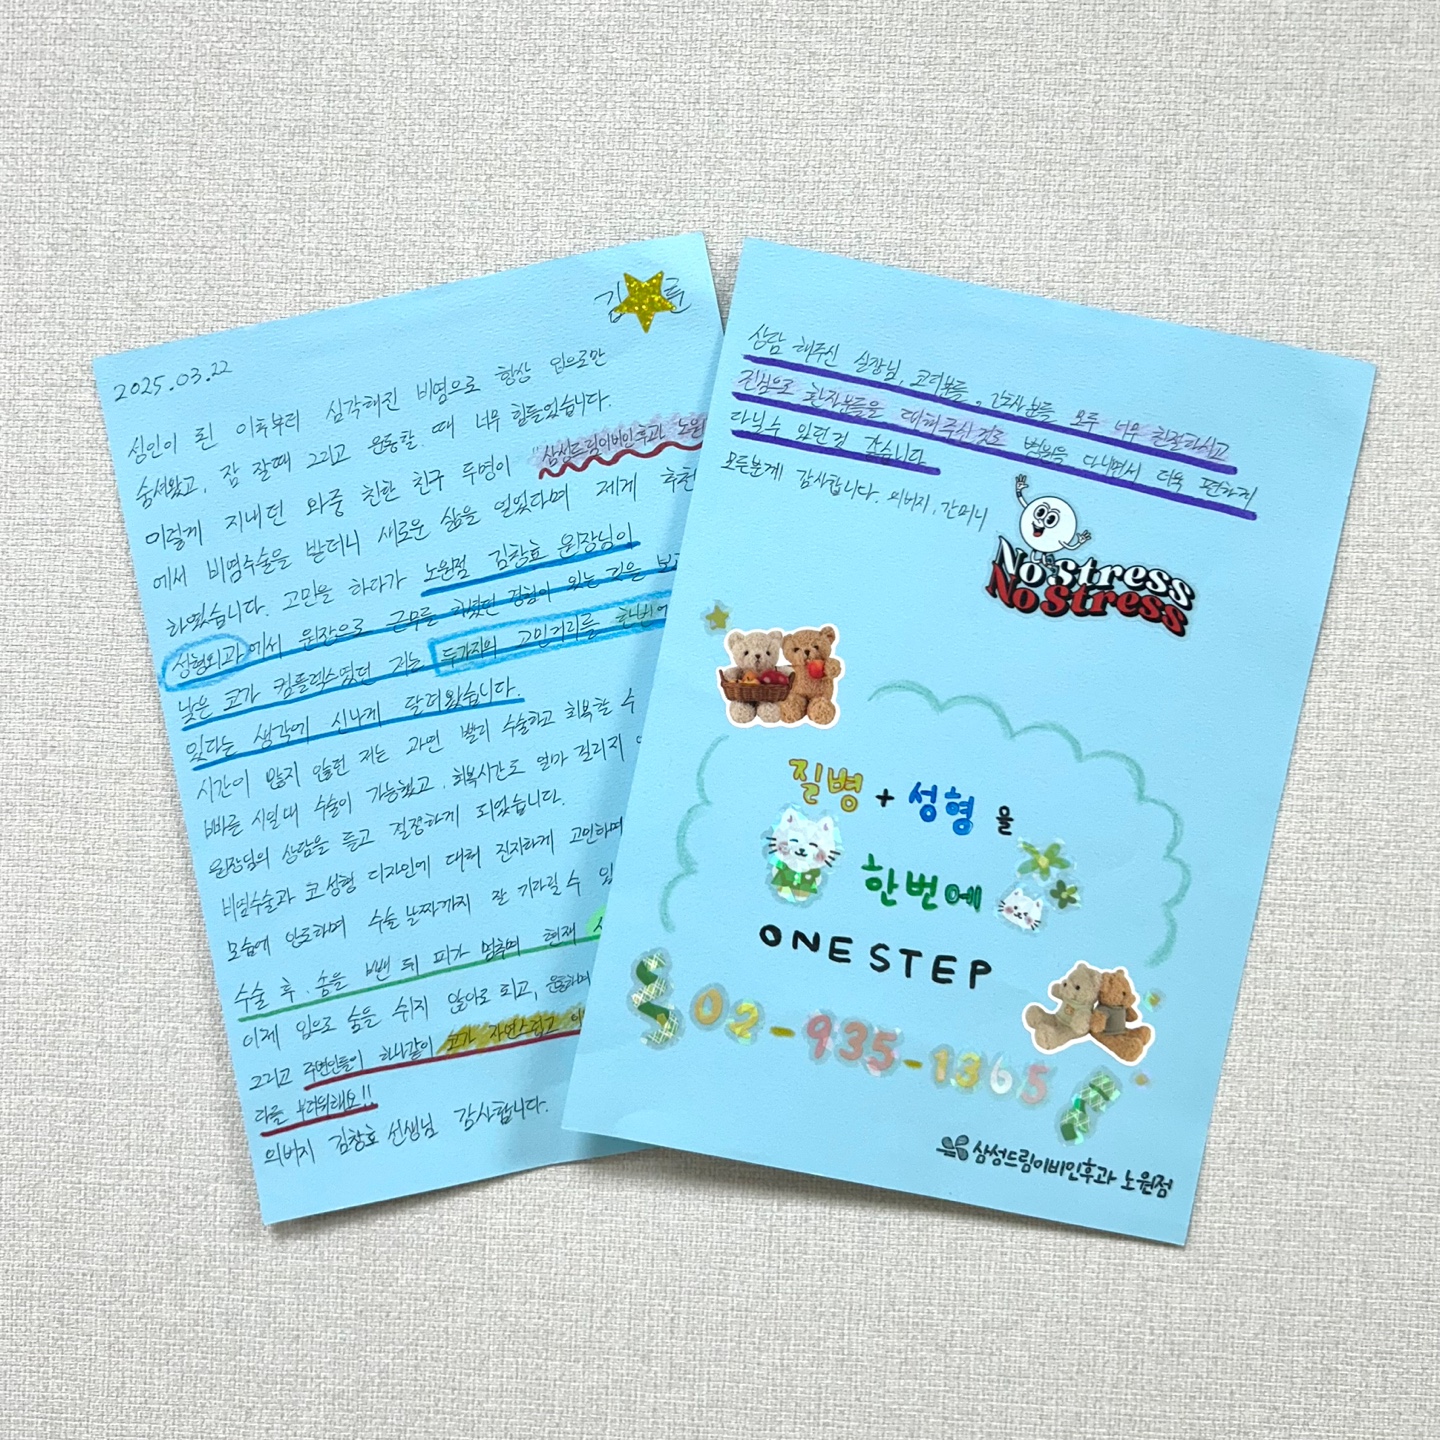 김 른
2025.03.22
성인이 된 이후부터 심각해진 비염으로 항상 입으로만
숨쉬었고, 잠 잘때 그리고 운동할 때 너무 힘들었습니다.
이렇게 지내던 와중 친한 친구 두명이 "삼성드림이비인후과 노원
에서 비염수술을 받더니 새로운 삶을 얻었다며 제게 추천
하였습니다. 고민을 하다가 노원점 김창효 원장님이
성형외과에서 원장으로 근무를 하셨던 경험이 있는 것을 보
낮은 코가 컴플렉스였던 저는 두가지의 고민거리를 한번에
있다는 생각에 신나게 달려왔습니다.
시간이 많지 않던 저는 과연 빨리 수술하고 회복할 수
빠른 시일내 수술이 가능했고, 회복시간도 얼마 걸리지
원장님의 상담을 듣고 결정하게 되었습니다.
비염수술과 코성형 디자인에 대해 진지하게 고민하며
모습에 안도하며 수술 날짜까지 잘 기다릴 수 있
수술 후, 솜을 뺀 뒤 피가 멈추며 현재
이제 입으로 숨을 쉬지 않아도 되고, 운동하며
그리고 주변인들이 하나같이 코가 자연스럽고
다들 부러워해요!!
의버지 김창효 선생님 감사합니다.
상담 해주신 실장님, 코디분들, 간호사분들 모두 너무 친절하시고
진심으로 환자분들을 대해주신 것 병원을 다니면서 더욱 편하게
다닐수 있었던것 같습니다
모든분께 감사합니다. 의버지, 간머니
No Stress
No Stress
질병 + 성형을
한번에
ONE STEP
02-935-1365
삼성드림이비인후과 노원점